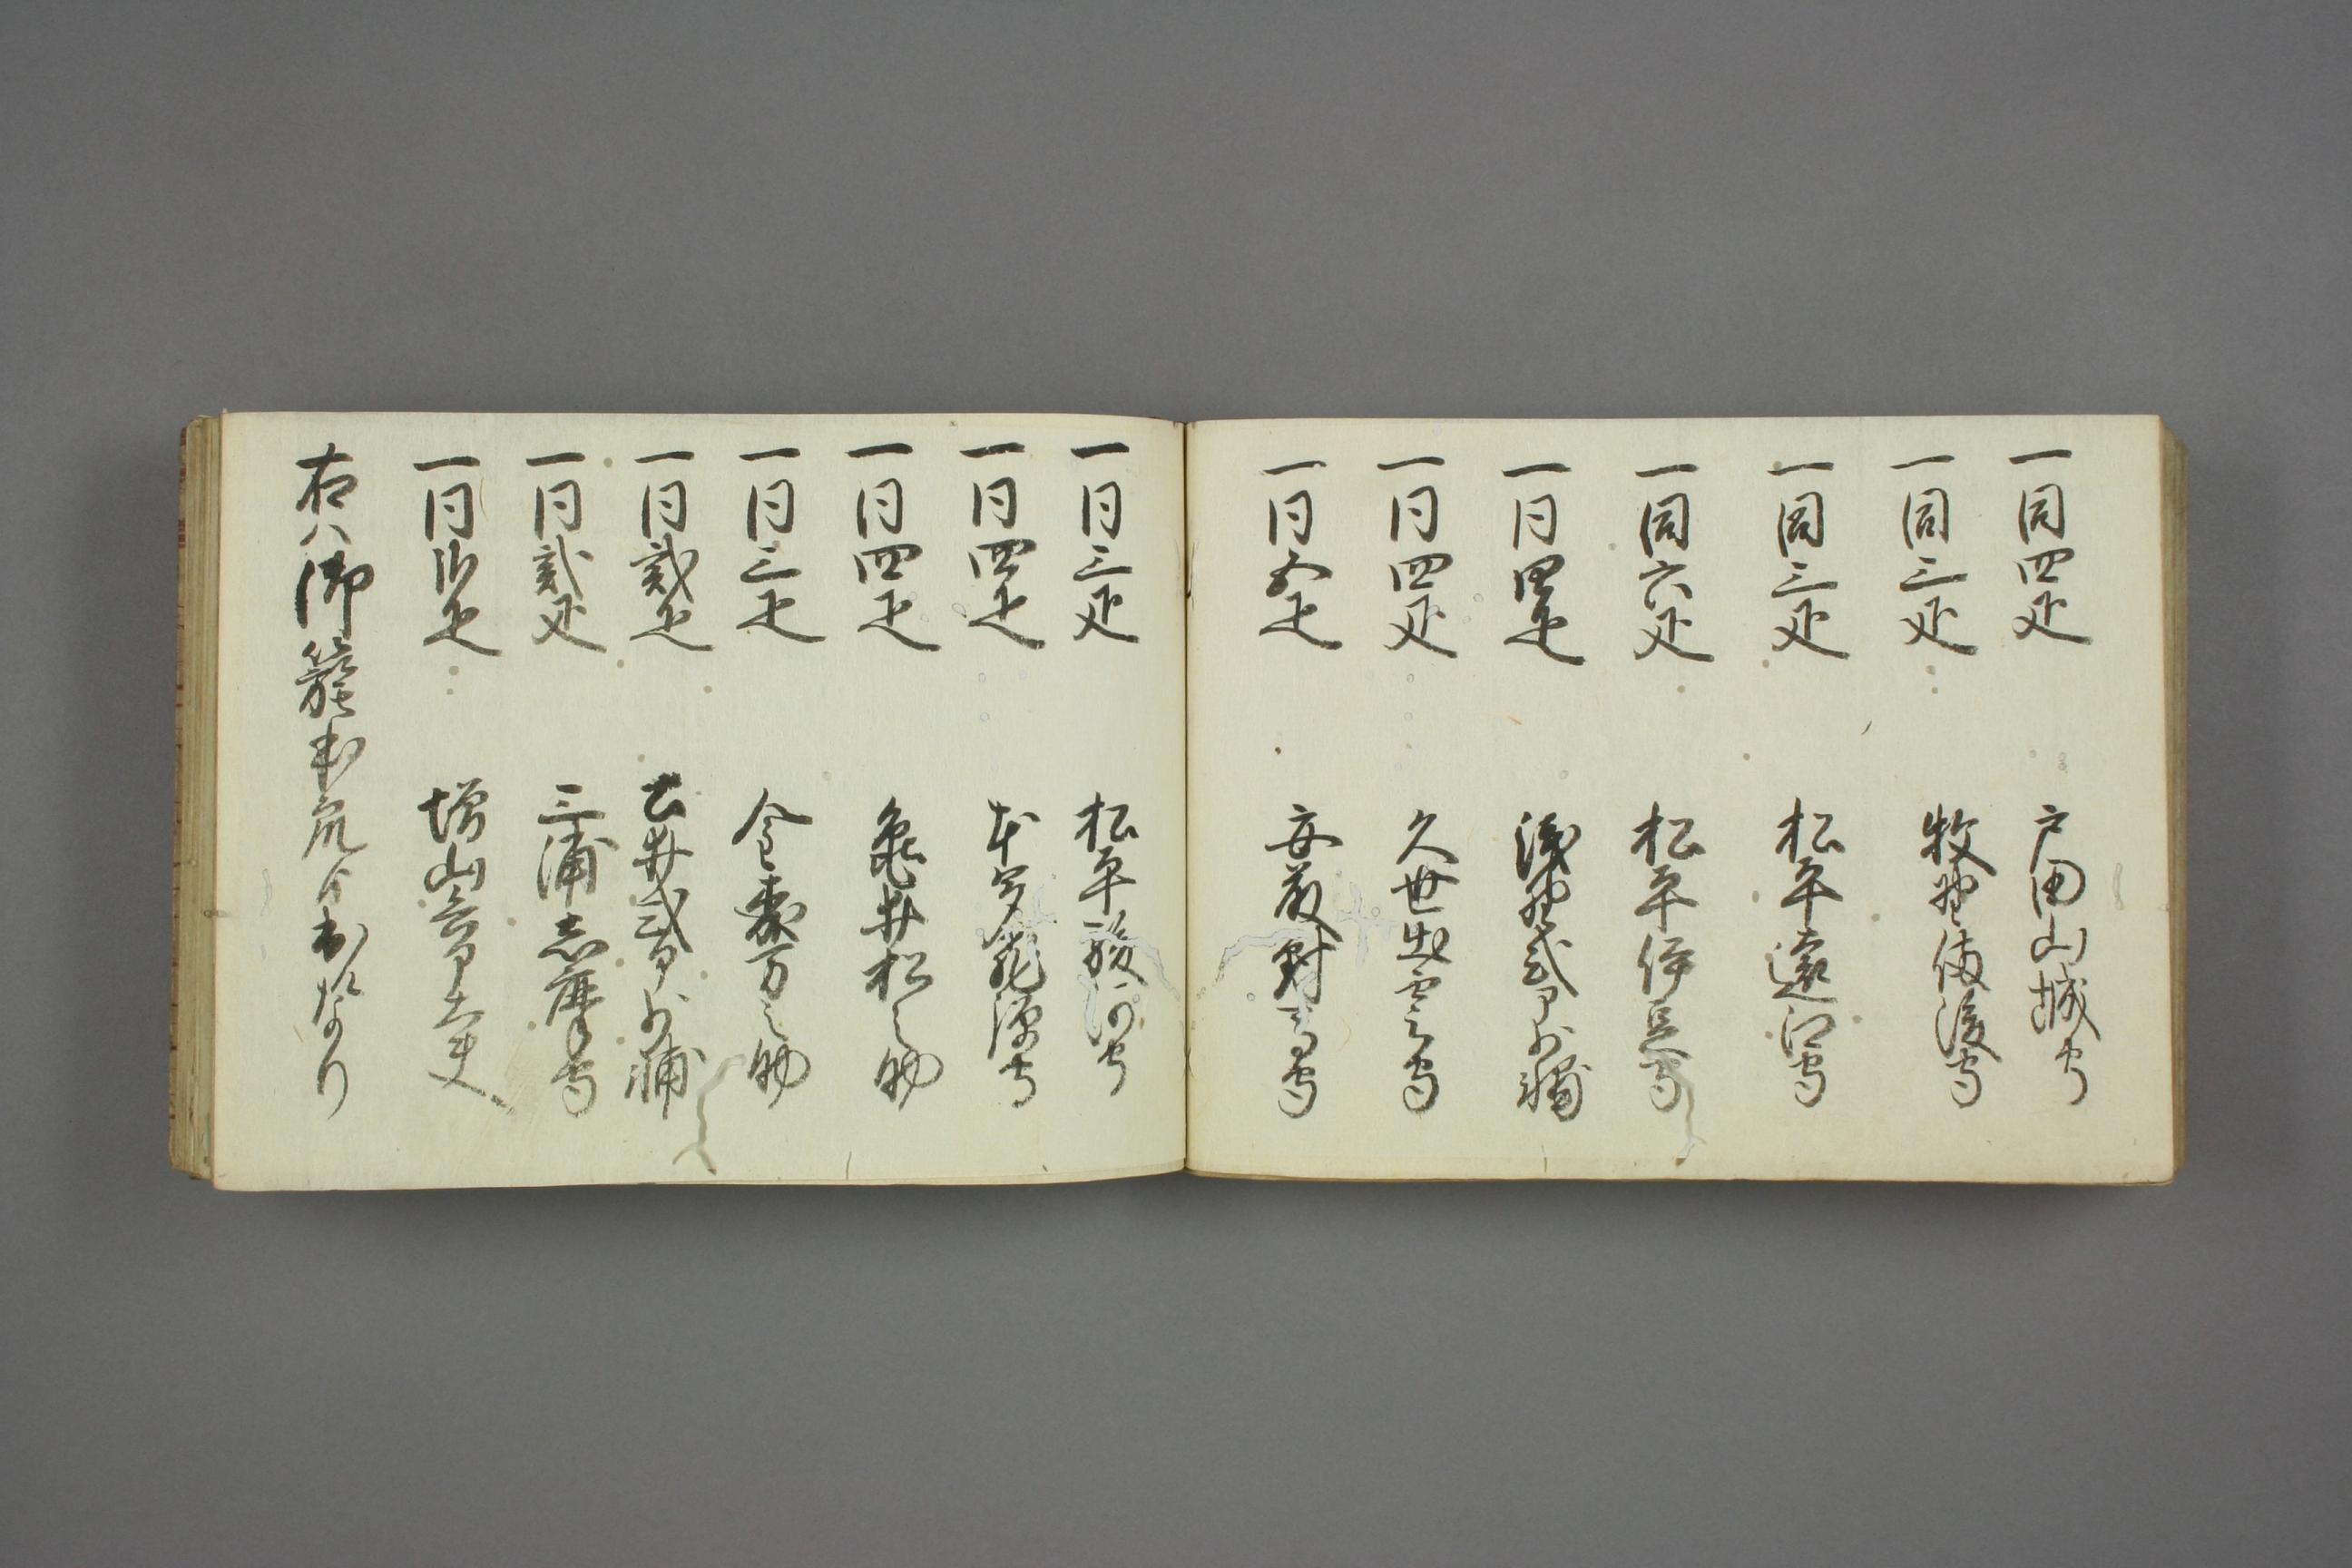 一同四疋　戸田山城守
一同三疋　牧野備後守
一同三疋　松平遠江守
一同六疋　松平伊豆守
一同四疋　浅野式部少輔
一同四疋　久世出雲之守
一同五疋　安藤對馬守
一同三疋　松平駿河守
一同四疋　本多飛彈守
一同四疋　亀井松之助
一同三疋　金森万之助
一同貳疋　土井式部少輔
一同貳疋　三浦志摩守
一同　疋　増山　太夫
右ハ御籠　なり